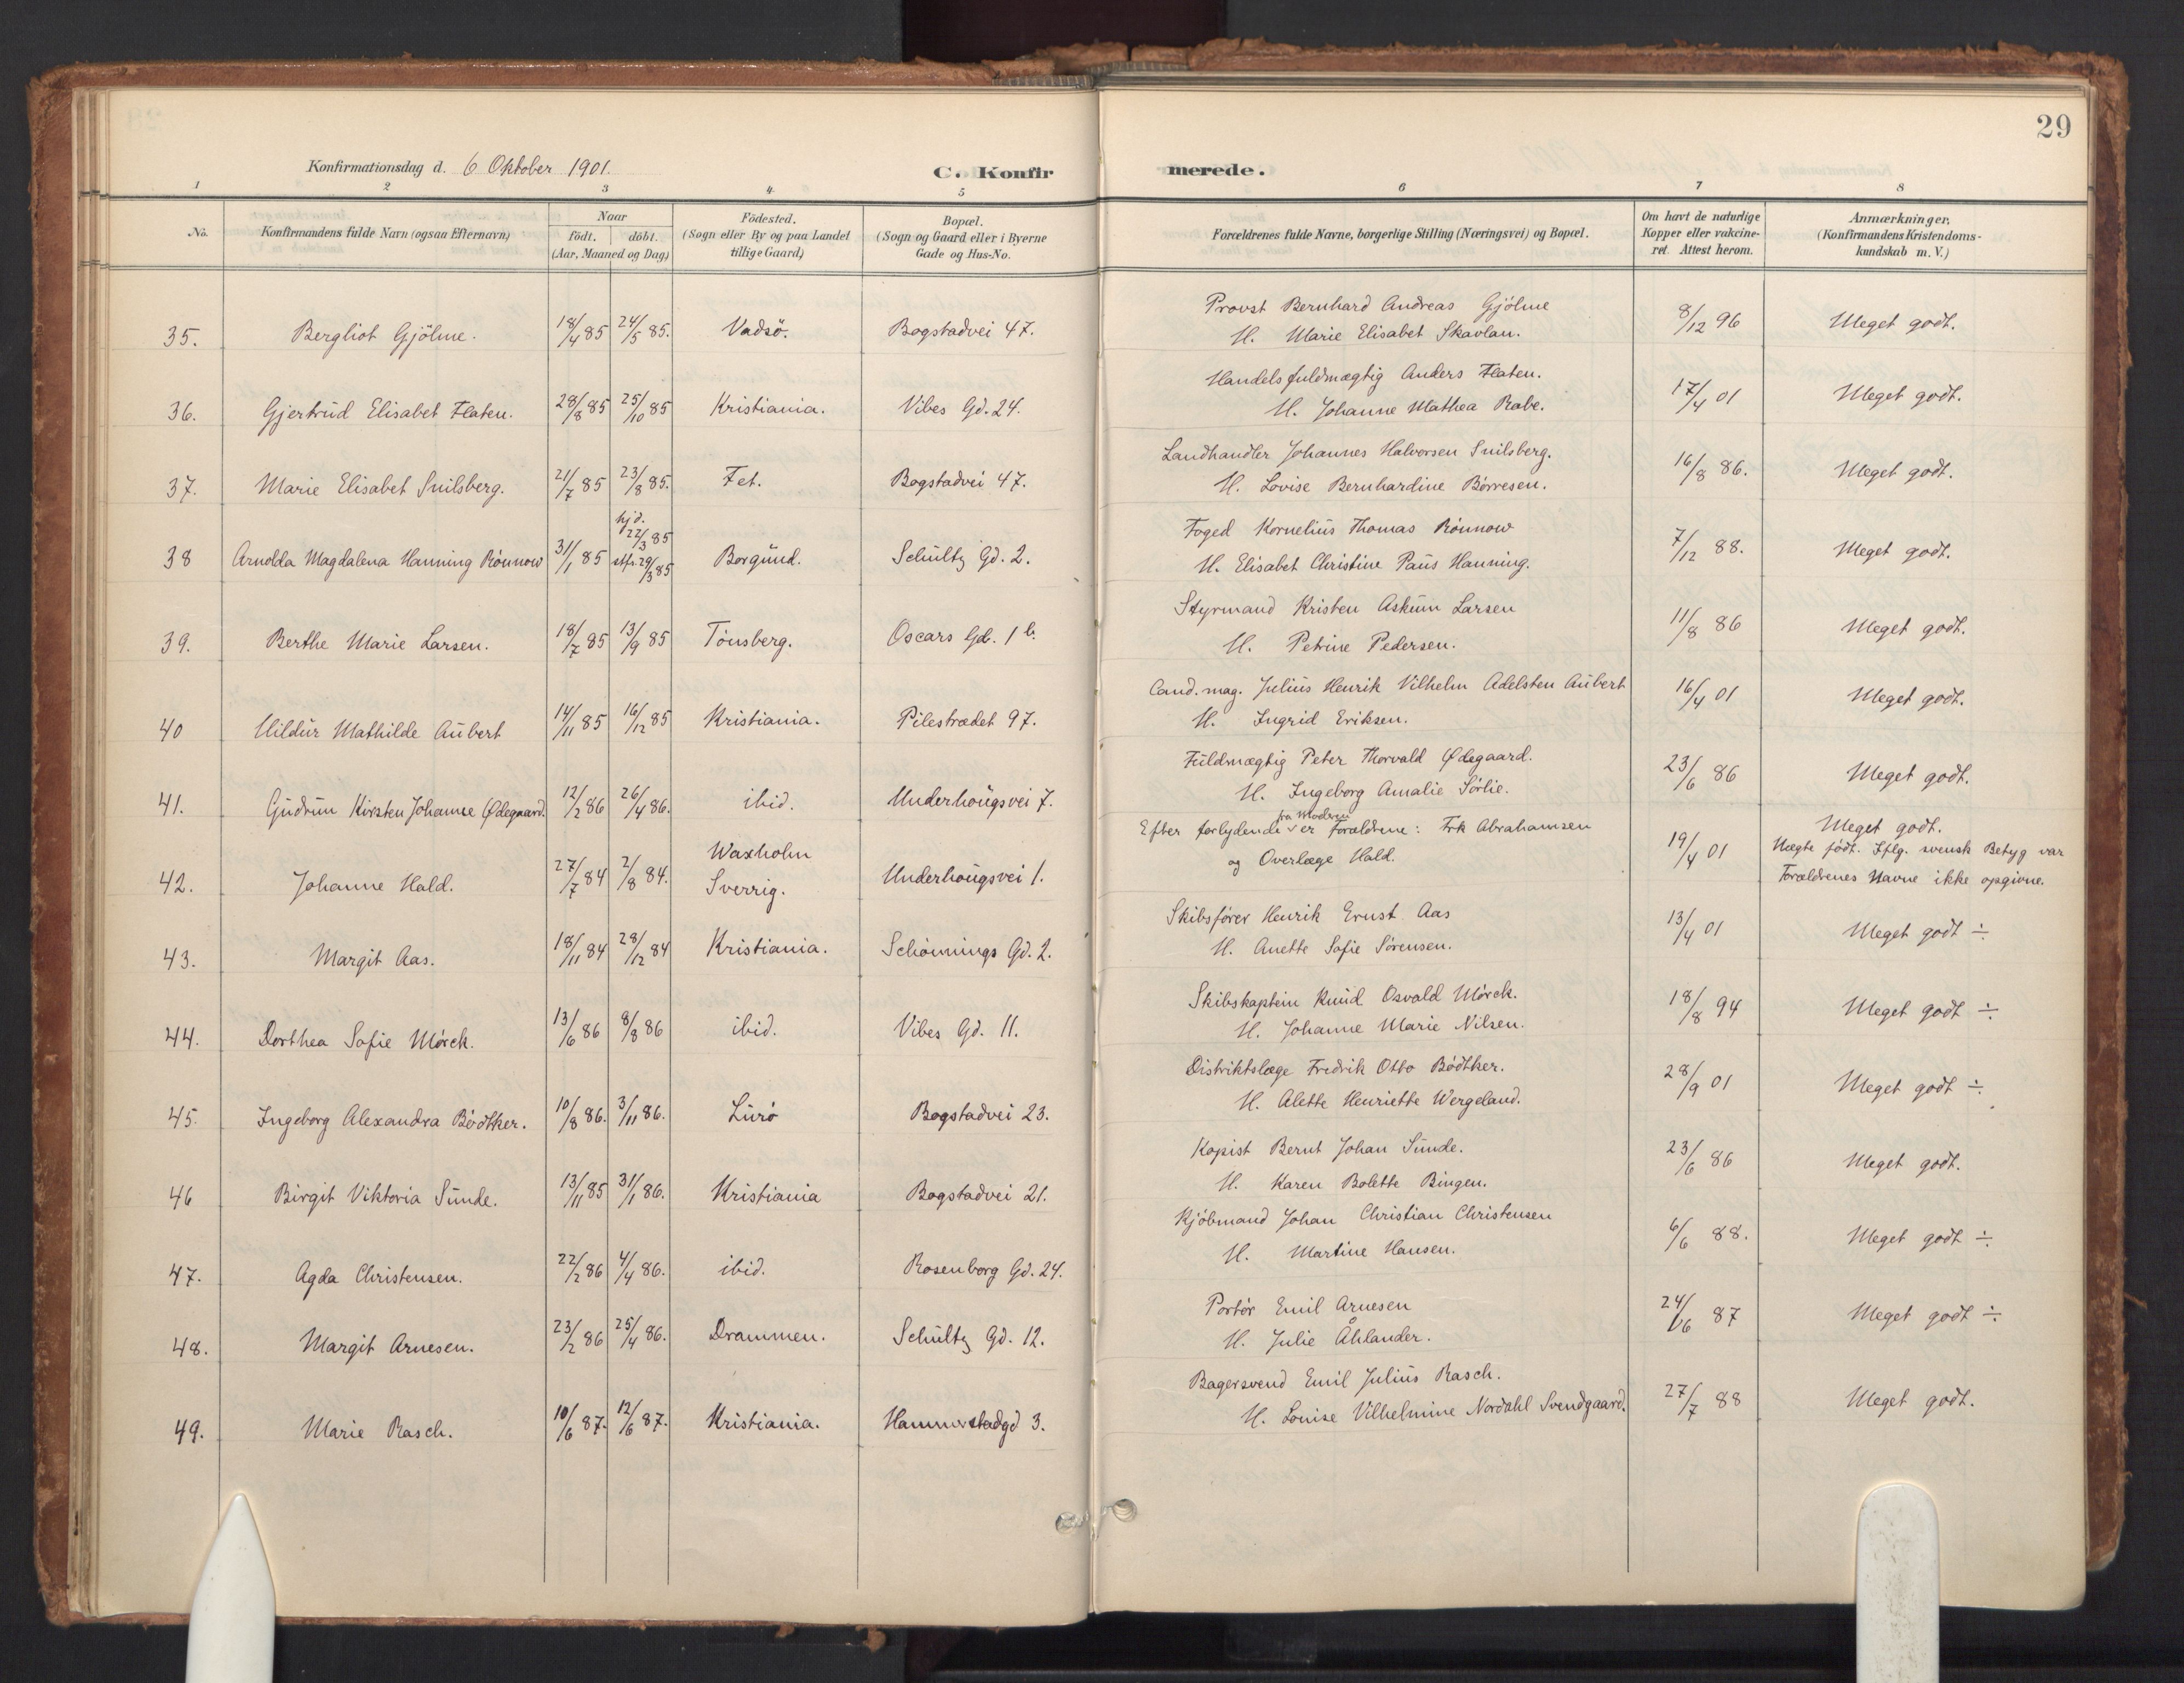 29
Konfirmationsdag d. 6 Oktober 1901.
C. Konfirmerede.
1 2 3 4 5 6 7 8
No.
Konfirmandens fulde Navn (ogsaa Efternavn)
Naar
födt. döbt.
(Aar, Maaned og Dag)
Födested.
(Sogn eller By og paa Landet
tillige Gaard)
Bopæl.
(Sogn og Gaard eller i Byerne
Gade og Hus-No.
Forældrenes fulde Navne, borgerlige Stilling (Næringsvei) og Bopæl.
Om havt de naturlige
Kopper eller vakcine-
ret. Attest herom.
Anmærkninger.
(Konfirmandens Kristendoms-
kundskab m. V.)
35. Bergliot Gjölme. 18/4 85 24/5 85. Vadsö. Bogstadvei 47. Provst Bernhard Andreas Gjölme 8/12 96 Meget godt.
H. Marie Elisabet Skavlan.
36. Gjertrud Elisabet Flaten. 28/8 85 25/10 85 Kristiania. Vibes Gd. 24. Handelsfuldmægtig Anders Flaten. 17/4 01 Meget godt.
H. Johanne Mathea Rabe.
37. Marie Elisabet Snilsberg. 21/7 85 23/8 85. Fet. Bogstadvei 47. Landhandler Johannes Halvorsen Snilsberg. 16/8 86. Meget godt.
H. Lovise Bernhardine Börresen.
38 Arnolda Magdalena Hanning Rönnow 31/1 85 hjd. 22/3 85 stfr. 29/3 85 Borgund. Schultz Gd. 2. Foged Kornelius Thomas Rönnow 7/12 88. Meget godt.
H. Elisabet Christine Paus Hanning.
39. Berthe Marie Larsen. 18/7 85 13/9 85 Tönsberg. Oscars Gd. 1 b. Styrmand Kristen Askum Larsen 11/8 86 Meget godt.
H. Petrine Pedersen.
40 Hildur Mathilde Aubert 14/11 85 16/12 85 Kristiania. Pilestrædet 97. Cand. mag. Julius Henrik Vilhelm Adelsten Aubert 16/4 01 Meget godt.
H. Ingrid Eriksen.
41. Gudrun Kirsten Johanne Ødegaard. 12/2 86 26/4 86. ibid. Underhougsvei 7. Fuldmægtig Peter Thorvald Ødegaard. 23/6 86 Meget godt.
H. Ingeborg Amalie Sörlie.
42. Johanne Hald. 27/7 84 2/8 84. Waxholm Sverrig. Underhougsvei 1. Efter forlydende fra Moderen er Forældrene: Frk Abrahamsen 19/4 01 Meget godt.
og Overlæge Hald. Uægte födt. Iflg. svensk Betyg var
Forældrenes Navne ikke opgivne.
43. Margit Aas. 18/11 84 28/12 84 Kristiania. Schönnings Gd. 2. Skibsförer Henrik Ernst Aas 13/4 01 Meget godt ÷
H. Anette Sofie Sörensen.
44. Dorthea Sofie Mörck. 13/6 86 8/8 86 ibid. Vibes Gd. 11. Skibskaptein Knud Osvald Mörck. 18/8 94 Meget godt ÷
H. Johanne Marie Nilsen.
45. Ingeborg Alexandra Bödtker. 10/8 86. 3/11 86. Lurö Bogstadvei 23. Distriktslæge Fredrik Otto Bödtker. 28/9 01 Meget godt ÷.
H. Alette Henriette Wergeland.
46 Birgit Viktoria Sunde. 13/11 85 31/1 86. Kristiania Bogstadvei 21. Kopist Bernt Johan Sunde. 23/6 86 Meget godt.
H. Karen Bolette Bingen.
47. Agda Christensen. 22/2 86 4/4 86. ibid. Rosenborg Gd. 24. Kjöbmand Johan Christian Christensen 6/6 88. Meget godt ÷
H. Martine Hansen.
48. Margit Arnesen. 23/2 86 25/4 86. Drammen. Schultz Gd. 12. Portör Emil Arnesen 24/6 87 Meget godt ÷
H. Julie Åhlander.
49. Marie Rasch. 10/6 87. 12/6 87. Kristiania. Hammerstadgd 3. Bagersvend Emil Julius Rasch. 27/7 88 Meget godt.
H. Louise Vilhelmine Nordahl Svendgaard.